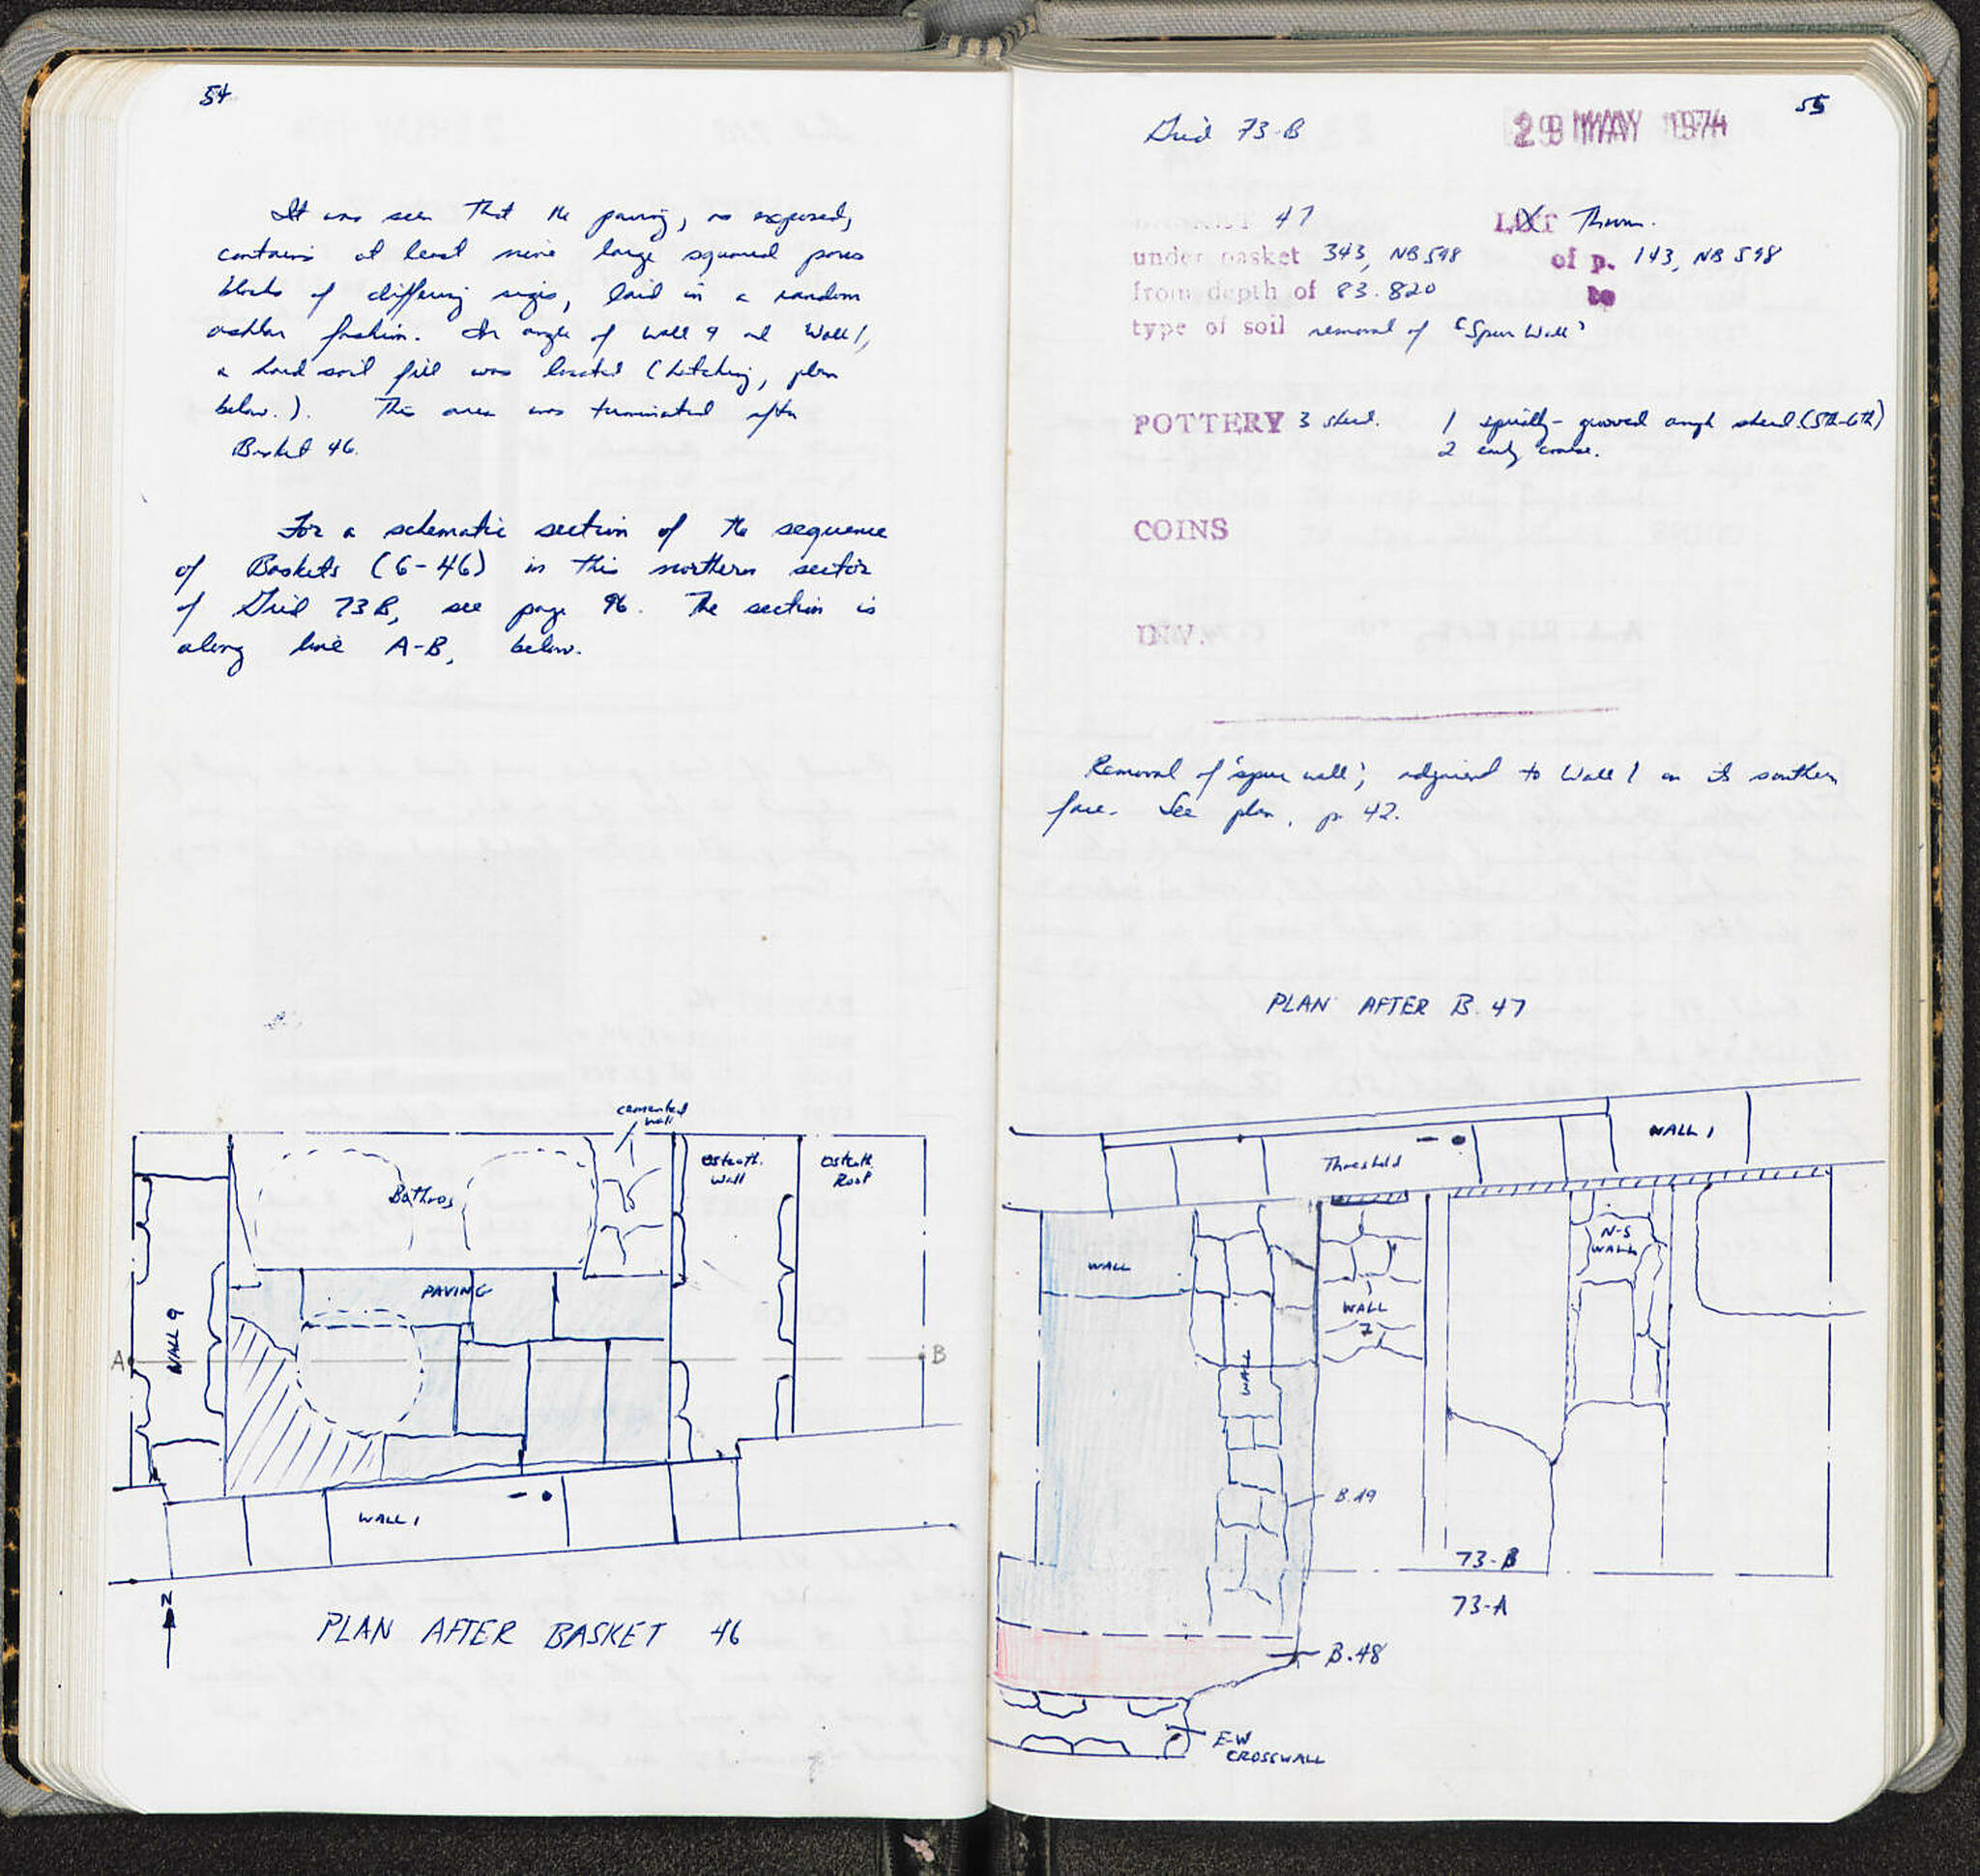 54
It was seen that the paving, as exposed,
contains at least nine large squared poros
blocks of differing sizes, laid in a random
ashlar fashion. In angle of Wall 9 and Wall 1,
a hard soil fill was located (hatching, plan
below.). This area was terminated after
Basket 46.
For a schematic section of the sequence
of Baskets (6-46) in this northern sector
of Grid 73B, see page 96. The section is
along line A-B, below.
cemented
wall
Osteoth.
Wall
Osteoth.
Roof
Bathros
PAVING
WALL 9
A
B
WALL 1
N
PLAN AFTER BASKET 46
55
Grid 73-B
29 MAY 1974
47
LOT Thrown.
under basket 343, NB 598
of p. 143, NB 598
from depth of 83.820
to
type of soil removal of "Spur Wall"
POTTERY 3 sherd. 1 spirally-grooved amph sherd (5th-6th)
2 early coarse.
COINS
INV.
Removal of 'spur wall', adjoined to Wall 1 on its southern
face. See plan, p. 42.
PLAN AFTER B. 47
WALL 1
Threshold
N-S
WALL
WALL
WALL
7
WALL
B.49
73-B
73-A
B.48
E-W
CROSSWALL